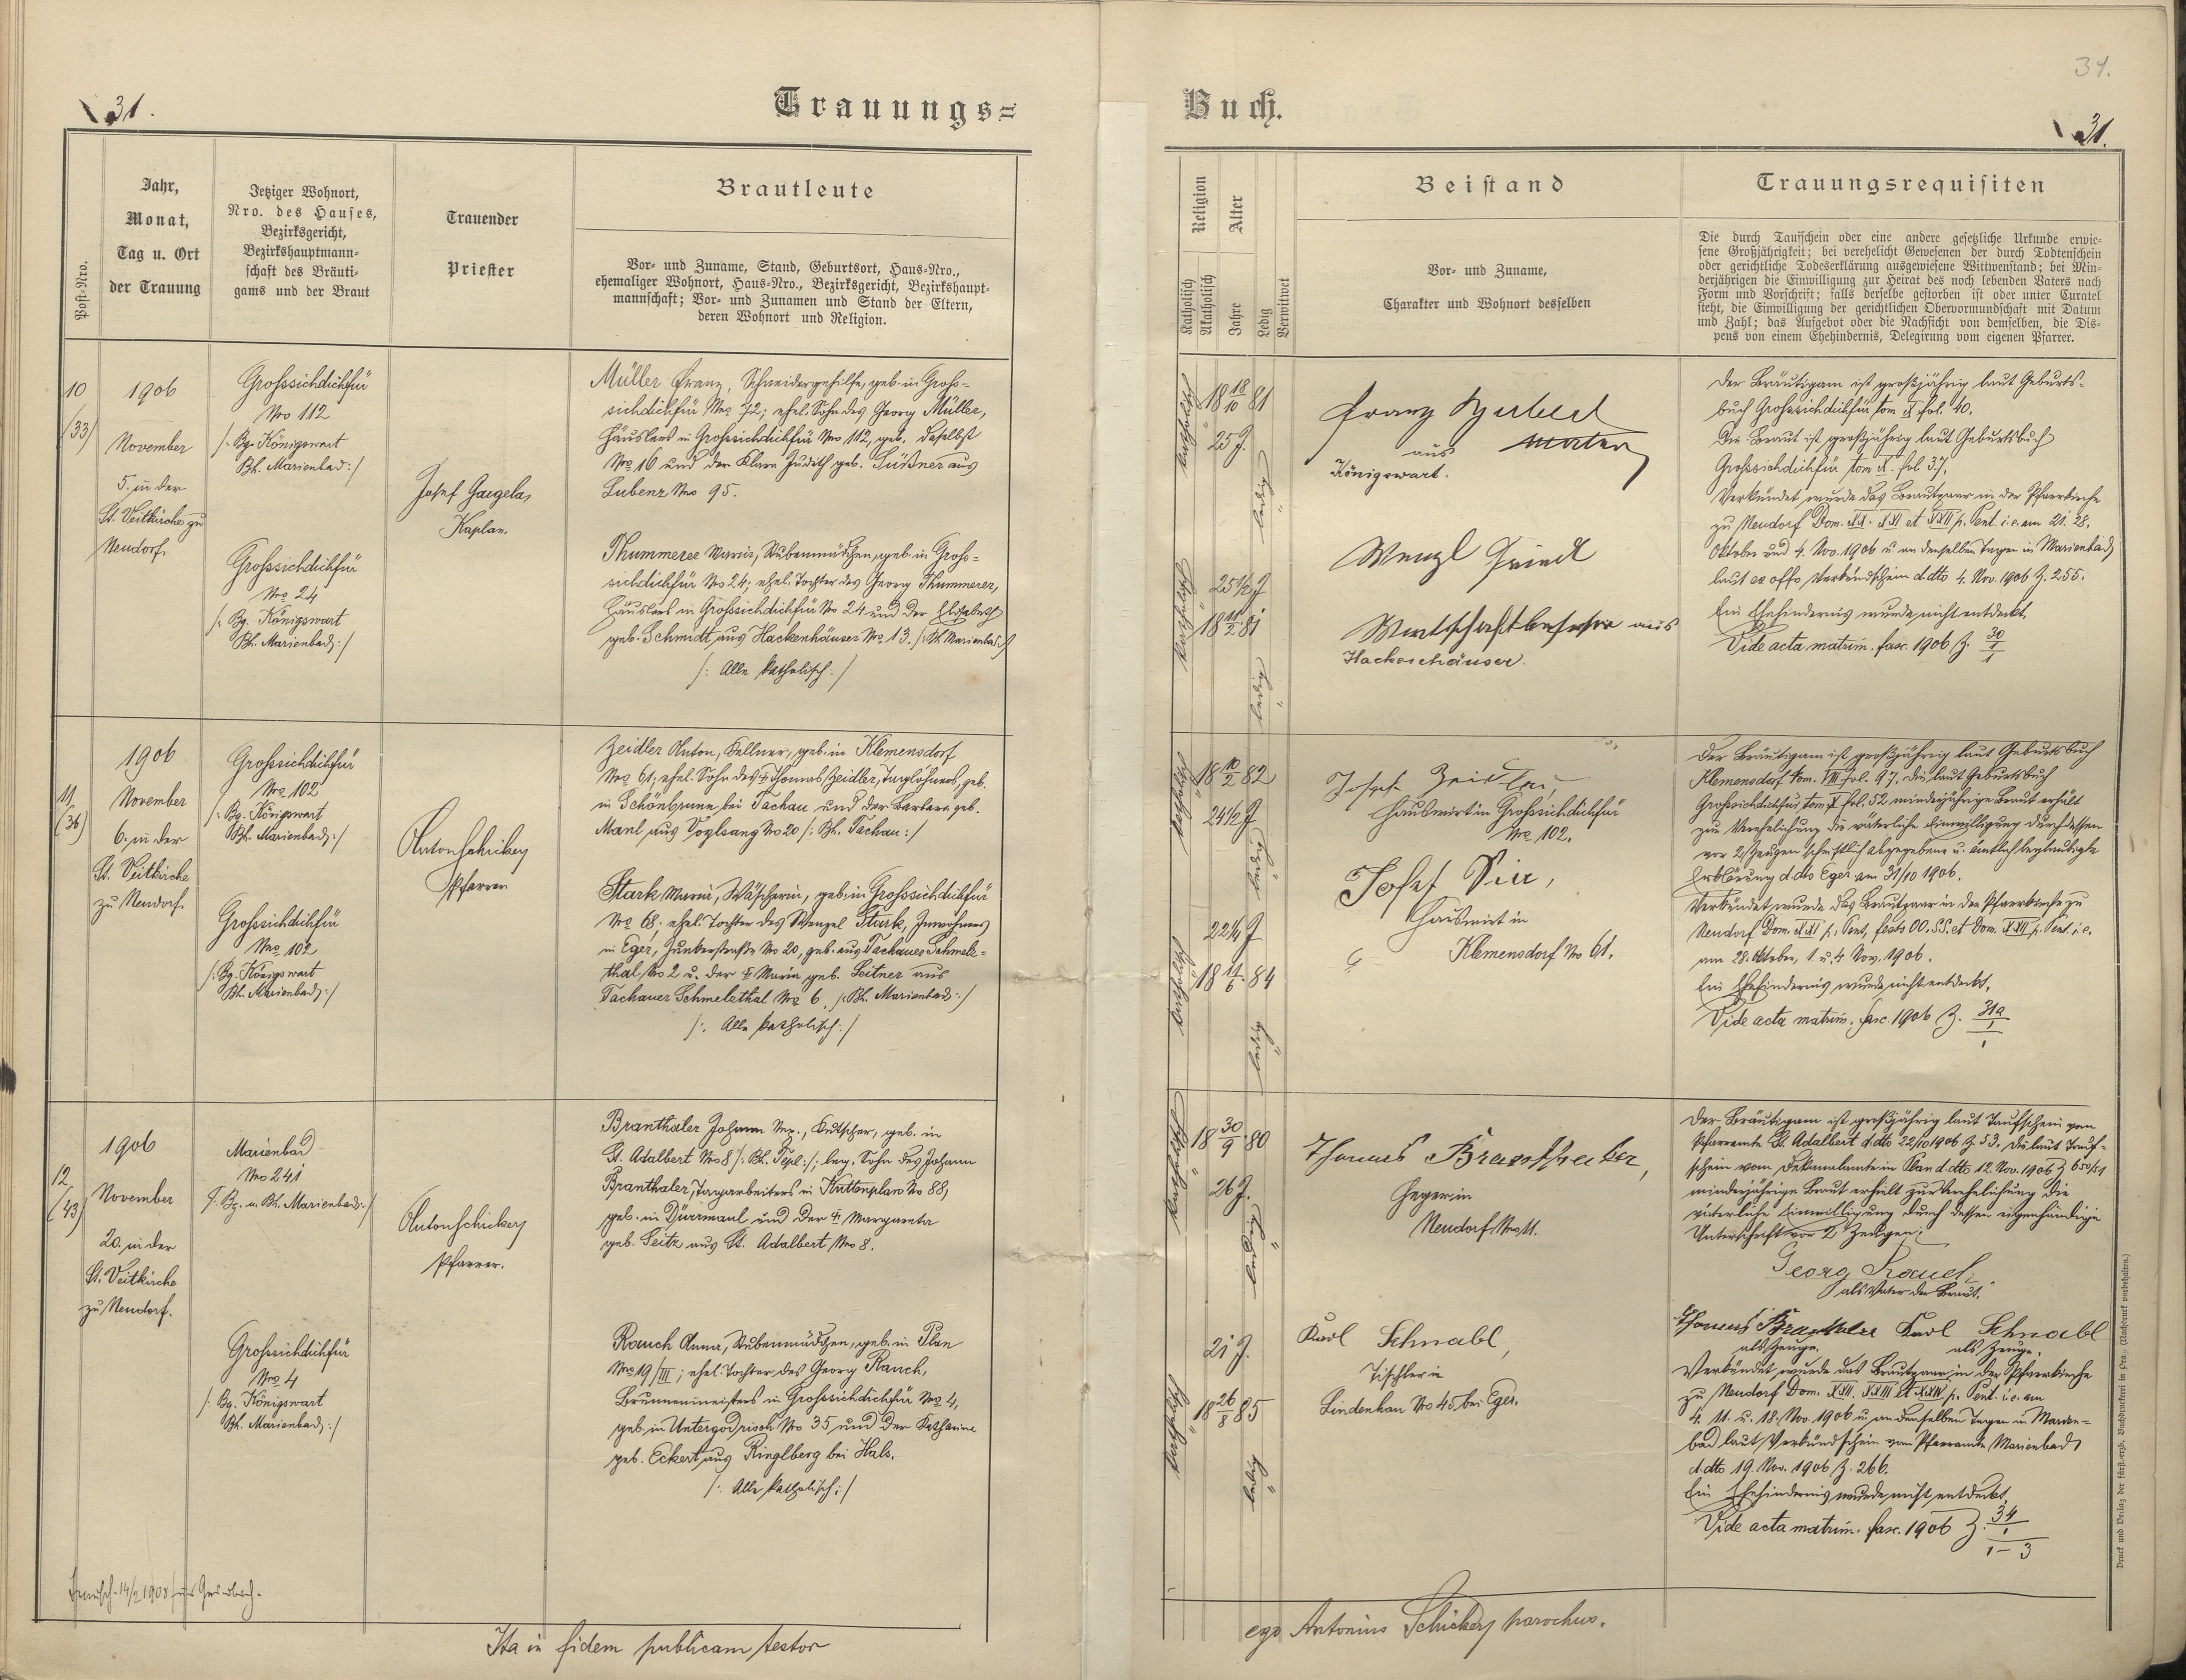 31.
Trauungs=
Post-Nro.
Jahr,
Monat,
Tag u. Ort
der Trauung
Jetziger Wohnort,
Nro. des Hauses,
Bezirksgericht,
Bezirkshauptmann-
schaft des Bräuti-
gams und der Braut
Trauender
Priester
Brautleute
Vor- und Zuname, Stand, Geburtsort, Haus-Nro.,
ehemaliger Wohnort, Haus-Nro., Bezirksgericht, Bezirkshaupt-
mannschaft; Vor- und Zunamen und Stand der Eltern,
deren Wohnort und Religion.
10
(33)
1906
November
5. in der
St. Veitkirche zu
Neudorf.
Grosssichdichfür
Nro 112
/: Bg. Königswart
Bh. Marienbad :/
Grosssichdichfür
Nro 24
/: Bg. Königswart
Bh. Marienbad :/
Josef Gargela,
Kaplan.
Müller Franz, Schneidergehilfe, geb. in Gross-
sichdichfür Nro 72; ehel. Sohn des Georg Müller,
Häuslers in Grosssichdichfür Nro 112, geb. daselbst
Nro 16 und der Klara Judith geb. Süßner aus
Lubenz Nro 95.
Thummerer Maria, Stubenmädchen, geb. in Gross-
sichdichfür No 24; ehel. Tochter des Georg Thummerer,
Häuslers in Grosssichdichfür No 24 und der Elisabeth
geb. Schmidt aus Hackenhäuser Nro 13. /: Bh. Marienbad :/
/: Alle katholisch :/
11
(36)
1906
November
6. in der
St. Veitkirche
zu Neudorf.
Grosssichdichfür
Nro 102
/: Bg. Königswart
Bh. Marienbad :/
Grosssichdichfür
Nro 102
/: Bg. Königswart
Bh. Marienbad :/
Anton Schickey
Pfarrer
Zeidler Anton, Kellner, geb. in Klemensdorf
Nro 61; ehel. Sohn des † Thomas Zeidler, Taglöhners, geb.
in Schönbrunn bei Tachau und der Barbara geb.
Manl aus Voglsang No 20 /: Bh. Tachau :/
Stark Maria, Wäscherin, geb. in Grosssichdichfür
Nro 68; ehel. Tochter des Wenzel Stark, Inwohners
in Eger, Junkerstraße No 20, geb. aus Tachauer Schmele-
thal No 2 u. der † Maria geb. Leitner aus
Tachauer Schmelethal Nro 6. /: Bh. Marienbad :/
/: Alle katholisch :/
12
(43)
1906
November
20. in der
St. Veitkirche
zu Neudorf.
Marienbad
No 241
/: Bg. u. Bh. Marienbad :/
Grosssichdichfür
Nro 4
/: Bg. Königswart
Bh. Marienbad :/
Anton Schickey
Pfarrer.
Branthaler Johann Nep., Kutscher, geb. in
St. Adalbert Nro 8 /: Bh. Tepl :/; leg. Sohn des Johann
Branthaler, Tagarbeiters in Kuttenplan No 88,
geb. in Dürrmaul und der † Margareta
geb. Seitz aus St. Adalbert Nro 8.
Rauch Anna, Stubenmädchen, geb. in Plan
Nro 19/III; ehel. Tochter des Georg Rauch,
Brunnenmeisters in Grosssichdichfür Nro 4,
geb. in Untergodrisch No 35 und der Katharina
geb. Eckert aus Ringlberg bei Hals.
/: Alle katholisch :/
14/2 1908
Ita in fidem publicam testor
31.
Buch.
31.
Religion
Katholisch
Akatholisch
Alter
Jahre
Ledig
Verwitwet
Beistand
Vor- und Zuname,
Charakter und Wohnort desselben
Trauungsrequisiten
Die durch Taufschein oder eine andere gesetzliche Urkunde erwie-
sene Großjährigkeit; bei verehelicht Gewesenen der durch Todtenschein
oder gerichtliche Todeserklärung ausgewiesene Wittwenstand; bei Min-
derjährigen die Einwilligung zur Heirat des noch lebenden Vaters nach
Form und Vorschrift; falls derselbe gestorben ist oder unter Curatel
steht, die Einwilligung der gerichtlichen Obervormundschaft mit Datum
und Zahl; das Aufgebot oder die Nachsicht von demselben, die Dis-
pens von einem Ehehindernis, Delegirung vom eigenen Pfarrer.
katholisch
18 18/10 81
25 J.
ledig
katholisch
25 1/2 J
18 11/2 81
ledig
Franz
aus
Königswart.
Wenzl
Wirtschaftbesitzer aus
Hackenhäuser.
Der Bräutigam ist großjährig laut Geburts-
buch Grosssichdichfür tom X. fol. 40.
Die Braut ist großjährig laut Geburtsbuch
Grosssichdichfür tom X. fol. 37.
Verkündet wurde das Brautpaar in der Pfarrkirche
zu Neudorf Dom. XX. XXI et XXII p. Pent. i.e. am 21. 28.
Oktober und 4. Nov. 1906 u. an denselben Tagen in Marienbad
laut ex offo Verkündschein d.dto 4. Nov. 1906 Z. 255.
Ein Ehehindernis wurde nicht entdeckt.
Vide acta matrim. fasc. 1906 Z. 30/1
katholisch
18 10/2 82
24 1/2 J
ledig
katholisch
22 1/4 J
18 11/6 84
ledig
Josef Zeidler,
Hauswirt in Grosssichdichfür
Nro 102.
Josef Sir,
Hauswirt in
Klemensdorf No 61.
Der Bräutigam ist großjährig laut Geburtsbuch
Klemensdorf tom. VIII fol. 97. Die laut Geburtsbuch
Grosssichdichfür tom X fol. 52 minderjährige Braut erhält
zur Verehelichung die väterliche Einwilligung durch dessen
vor 2 Zeugen schriftlich abgegebene u. ämtlich beglaubigte
Erklärung d.dto Eger am 31/10 1906.
Verkündet wurde das Brautpaar in der Pfarrkirche zu
Neudorf Dom. XXI p. Pent, festo OO. SS. et Dom. XXII p. Pent. i.e.
am 28. Oktober, 1. u. 4 Nov. 1906.
Ein Ehehindernis wurde nicht entdeckt.
Vide acta matrim. fasc. 1906 Z. 31a/1
katholisch
18 30/9 80
26 J.
ledig
katholisch
21 J.
18 26/8 85
ledig
Thomas Branthaler,
Heger in
Neudorf Nro 11.
Karl Schnabl,
Tischler in
Lindenhau No 45 bei Eger.
Der Bräutigam ist großjährig laut Taufschein vom
Pfarramte St. Adalbert d.dto 22/10 1906 Z 53. Die laut Tauf-
schein vom Dekanalamte in Plan d.dto 12. Nov. 1906 Z 650/51
minderjährige Braut erhält zur Verehelichung die
väterliche Einwilligung durch dessen eigenhändige
Unterschrift vor 2 Zeugen:
Georg Rauch
als Vater der Braut.
Thomas Branthaler Karl Schnabl
als Zeuge. als Zeuge.
Verkündet wurde das Brautpaar in der Pfarrkirche
zu Neudorf Dom. XXII, XXIII et XXIV p. Pent. i.e. am
4. 11. u. 18. Nov. 1906 u. an denselben Tagen in Marien-
bad laut Verkündschein vom Pfarramte Marienbad
d.dto 19. Nov. 1906 Z. 266.
Ein Ehehindernis wurde nicht entdeckt.
Vide acta matrim. fasc. 1906 Z. 34/1-3
ego Antonius Schickey parochus.
Druck und Verlag der fürst-erzb. Buchdruckerei in Prag. (Nachdruck vorbehalten.)